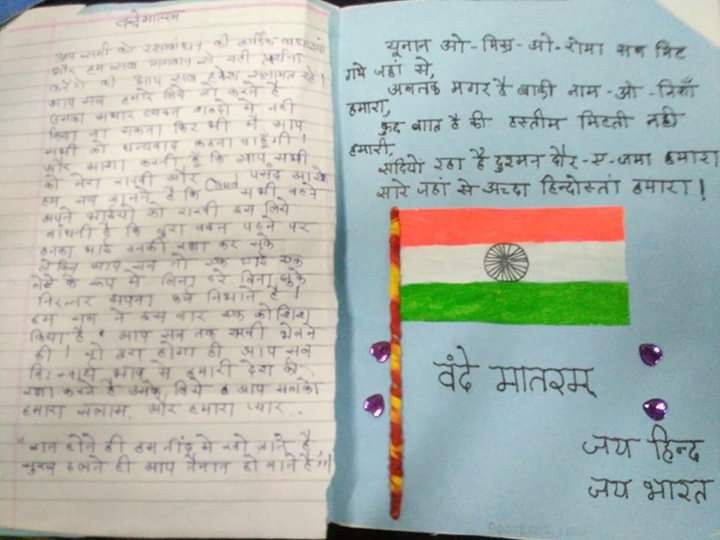 वन्देमातरम
आप सभी को रक्षाबंधन की हार्दिक
और हम सब भगवान से यही प्रार्थना
करेंगे की आप सब हमेशा सलामत रहे।
आप सब हमारे लिये जो करते है
उनका आभार व्यक्त शब्दों में नही
किया जा सकता फिर भी मैं आप
सभी को धन्यवाद करना चाहूँगी।
और आशा करती हूँ कि आप सभी
को मेरा राखी और Card पसंद आये
हम सब जानते है कि सभी बहने
अपने भाईयों को राखी इस लिये
बांधती है कि बुरा वक्त पड़ने पर
उनका भाई उनकी रक्षा कर सके
लेकिन आप सब तो एक भाई एक
बेटे के रूप में बिना डरे बिना झुके
निरन्तर अपना फर्ज निभाते है।
हम सब ने इस बार एक कोशिश
किया है आप सब तक राखी भेजने
की। जो बुरा होगा ही आप सब
निःस्वार्थ भाव से हमारी देश की
रक्षा करते है उसके लिये आप सबको
हमारा सलाम, और हमारा प्यार..
"रात होते ही हम नींद में खो जाते है
सूरज ढलते ही आप तैनात हो जाते है"!!
यूनान ओ-मिस्र-ओ-रोमा सब मिट
गये जहां से,
अबतक मगर है बाकी नाम-ओ-निशाँ
हमारा,
कुछ बात है की हस्तीम मिटती नही
हमारी,
सदियो रहा है दुश्मन दौर-ए-जमा हमारा
सारे जहां से अच्छा हिन्दोस्तां हमारा!
वंदे मातरम्
जय हिन्द
जय भारत